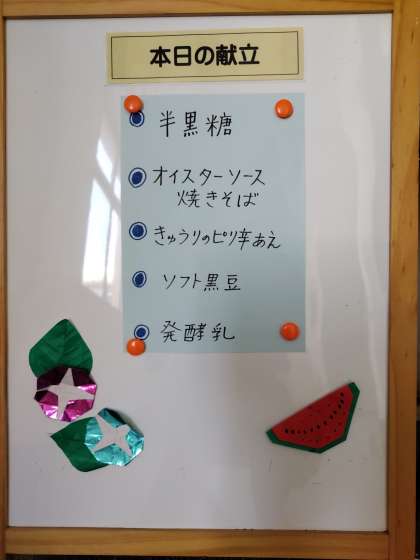 本日の献立
半黒糖
オイスターソース
焼きそば
きゅうりのピリ辛あえ
ソフト黒豆
発酵乳